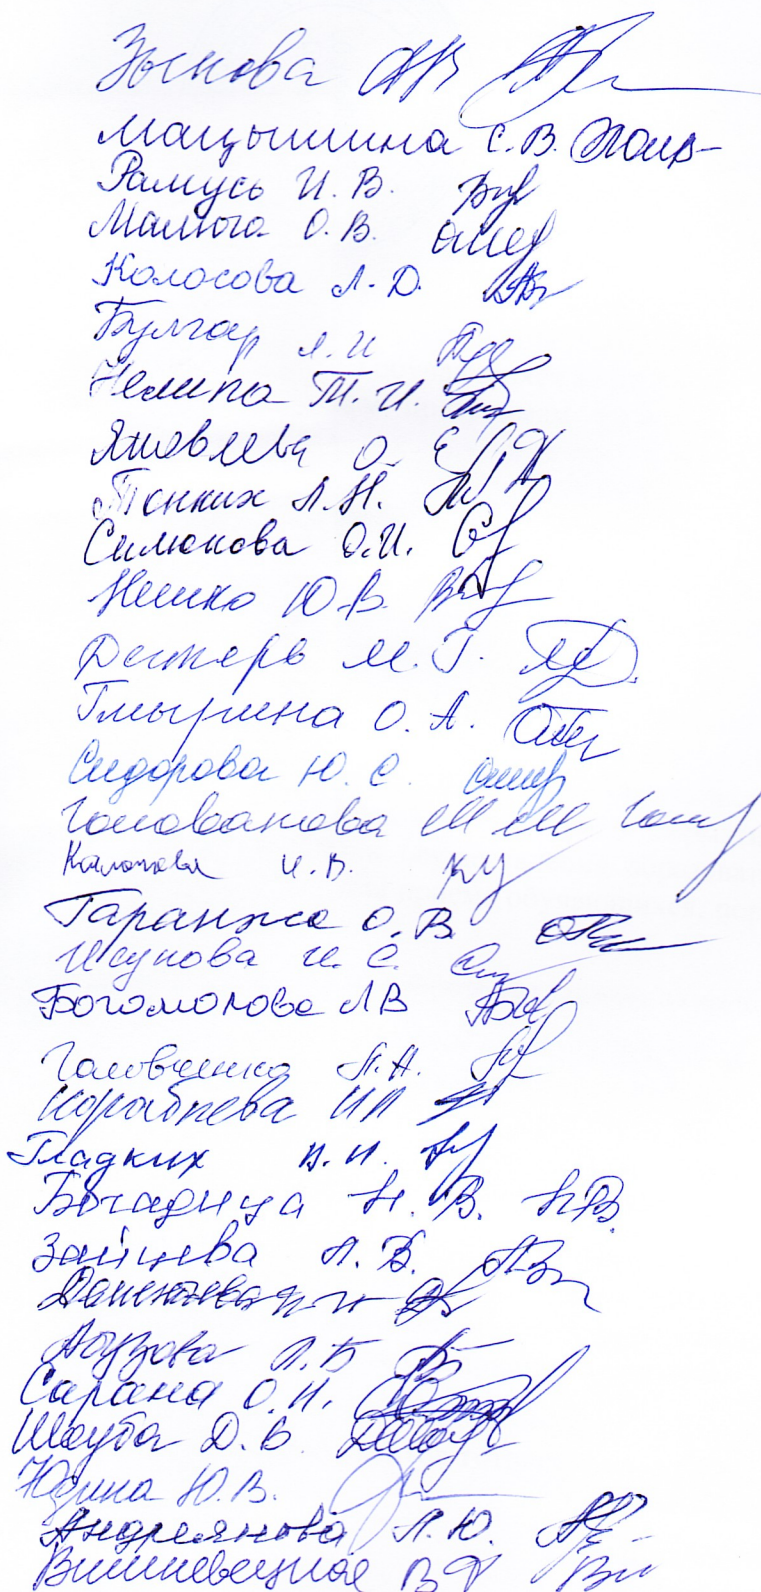 Зыкова АВ
Мацышина С.В.
Рамусь И. В.
Малюга О. В.
Колосова Л. Д.
Булгар Л. И
Нелипа Т. И.
Яковлева О. Е
Тонких Л. Н.
Силюкова О.И.
Нешко Ю В.
Дегтярь М. Г.
Гмырина О. А.
Сидорова Ю. С.
Голованова М М
И. В.
Гаранжа О. В
Исупова И. С.
Богомолова Л В
Головченко Л. А.
Кораблева И П
Гладких В. И.
Богадица Н. В.
Зайцева Л. В.
Л. Б
Сарана О. Н.
Шауба Д. В
Юдина Ю. В.
Андреянова Л. Ю.
Вишневецкая В